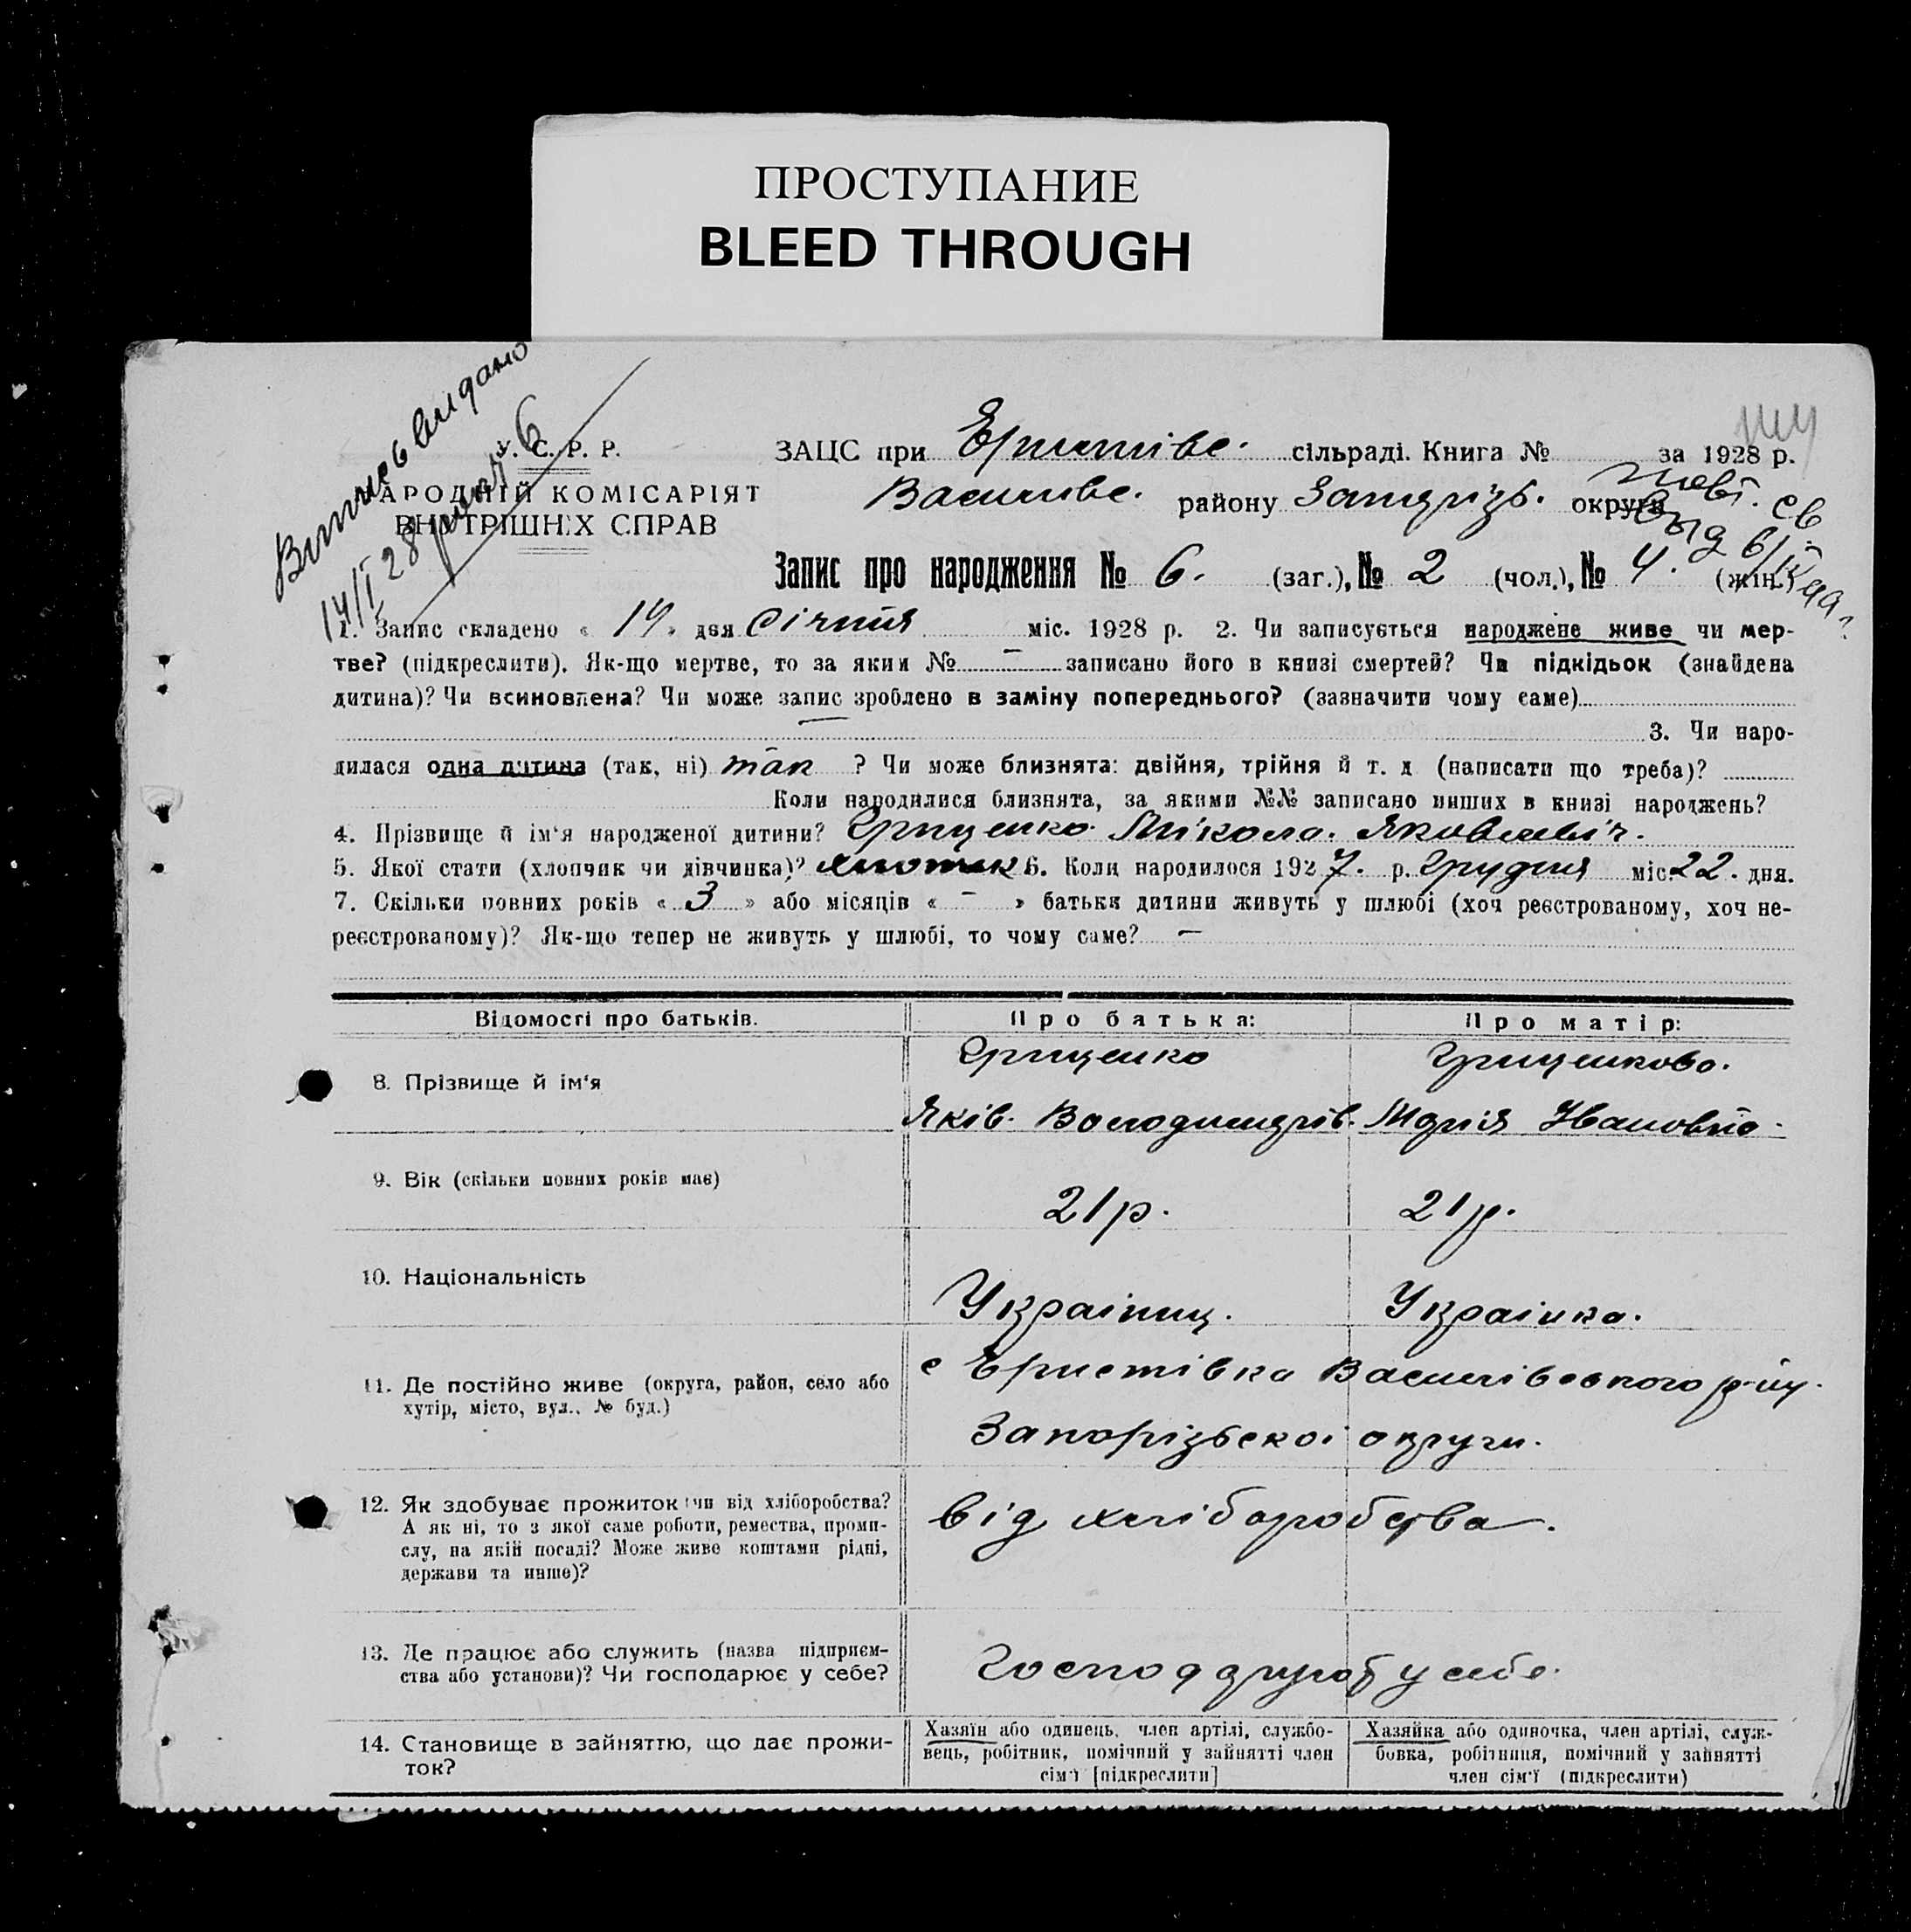 ПРОСТУПАНИЕ
BLEED THROUGH
Виписъ видано
14/I 28 року 6
У. С. Р. Р.
НАРОДНІЙ КОМІСАРІЯТ
ВНУТРІШНІХ СПРАВ
ЗАЦС при сільраді. Книга № за 1928 р.
Василівс. району Запоріз. округи
Повт. св.
выд 6/
Запис про народження № 6. (заг.), № 2 (чол.), № 4. (жін.)
1. Запис складено « 14 » дня січня міс. 1928 р. 2. Чи записується народжене живе чи мер-
тве? (підкреслити). Як-що мертве, то за яким № – записано його в книзі смертей? Чи підкідьок (знайдена
дитина)? Чи всиновлена? Чи може запис зроблено в заміну попереднього? (зазначити чому саме)
3. Чи наро-
дилася одна дитина (так, ні) так ? Чи може близнята: двійня, трійня й т. д (написати що треба)?
Коли народилися близнята, за якими №№ записано инших в книзі народжень?
4. Прізвище й ім'я народженої дитини? Гриценко Мікола. Яковлевіч.
5. Якої стати (хлопчик чи дівчинка)? 6. Коли народилося 1927. р. Грудня міс. 22. дня.
7. Скільки повних років « 3 » або місяців « – » батьки дитини живуть у шлюбі (хоч реєстрованому, хоч не-
реєстрованому)? Як-що тепер не живуть у шлюбі, то чому саме? –
Відомості про батьків. Про батька: Про матір:
8. Прізвище й ім'я
Гриценко Гриценково.
Яків. Володимирів. Марія Івановна.
9. Вік (скільки повних років має)
21р. 21р.
10. Національність
Україниц. Українка.
11. Де постійно живе (округа, район, село або
хутір, місто, вул., № буд.)
с Еристівка Василівського р-ну.
Запорізьскоі округи.
12. Як здобуває прожиток: чи від хліборобства?
А як ні, то з якої саме роботи, ремества, проми-
слу, на якій посаді? Може живе коштами рідні,
держави та инше)?
від хліборобства.
13. Де працює або служить (назва підприєм-
ства або установи)? Чи господарює у себе?
у себе.
14. Становище в зайняттю, що дає прожи-
ток?
Хазяїн або одинець, член артілі, службо-
вець, робітник, помічний у зайнятті член
сім'ї [підкреслити]
Хазяйка або одиночка, член артілі, служ-
бовка, робітниця, помічний у зайнятті
член сім'ї (підкреслити)